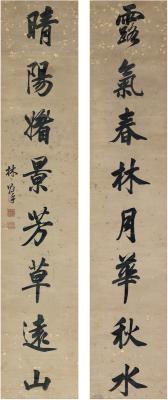 露氣春林月華秋水
晴陽媚景芳草遠山
林則徐